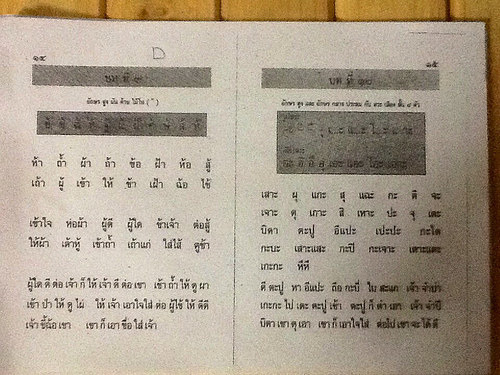 ๑๔
D
บท ที่ ๙
อักษร สูง ผัน ด้วย ไม้โท ( ้ )
ห้า ถ้ำ ผ้า ถ้า ข้อ ฝ้า ห้อ สู้
เถ้า ผู้ เข้า ให้ ข้า เฝ้า ฉ้อ ใช้
เข้าใจ ห่อผ้า ผู้ดี ผู้ใด ข้าเจ้า ต่อสู้
ให้ผ้า เข้าถ้ำ เถ้าแก่ ใส่ไส้
ผู้ใด ดี ต่อ เจ้า ก็ ให้ เจ้า ดี ต่อ เขา เข้า ถ้ำ ให้ ดู ผา
เข้า ป่า ให้ ดู ไม้ ให้ เจ้า เอาใจใส่ ต่อ ผู้ใช้ ให้ ดีดี
เจ้า ขี้ฉ้อ เขา เขา ก็ เอา ชื่อ ใส่ เจ้า
๑๕
บท ที่ ๑๐
อักษร สูง และ อักษร กลาง ประสม กับ สระ เสียง สั้น ๘ ตัว
เสาะ ผุ แกะ สุ แฉะ กะ ติ จะ
เจาะ ดุ เกาะ สิ เหาะ ปะ จุ เตะ
บิดา ตะปู อีแปะ เปะปะ กะโต
กะบะ เสาะแสะ กะปิ กะเจาะ เตาะแตะ
เกะกะ หิหี
ตี ตะปู หา อีแปะ ถือ กะบี่ ใบ สะแก เจ้า จำปา
เกะกะ ไป เตะ ตะปู เข้า ตะปู ก็ ตำ เอา เจ้า จำปี
บิดา เขา ดุ เอา เขา ก็ เอาใจใส่ ต่อไป เขา จะ ได้ ดี